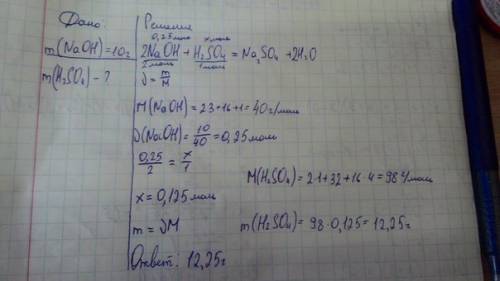 Дано:
m(NaOH)=10г
m(H₂SO₄)-?
Решение
0,25моль x моль
2NaOH + H₂SO₄ = Na₂SO₄ + 2H₂O
2моль 1моль
ν = m/M
M(NaOH) = 23+16+1 = 40г/моль
ν(NaOH) = 10/40 = 0,25моль
0,25/2 = x/1
x = 0,125моль
M(H₂SO₄) = 2·1+32+16·4 = 98г/моль
m = νM
m(H₂SO₄) = 98·0,125 = 12,25г
Ответ: 12,25г